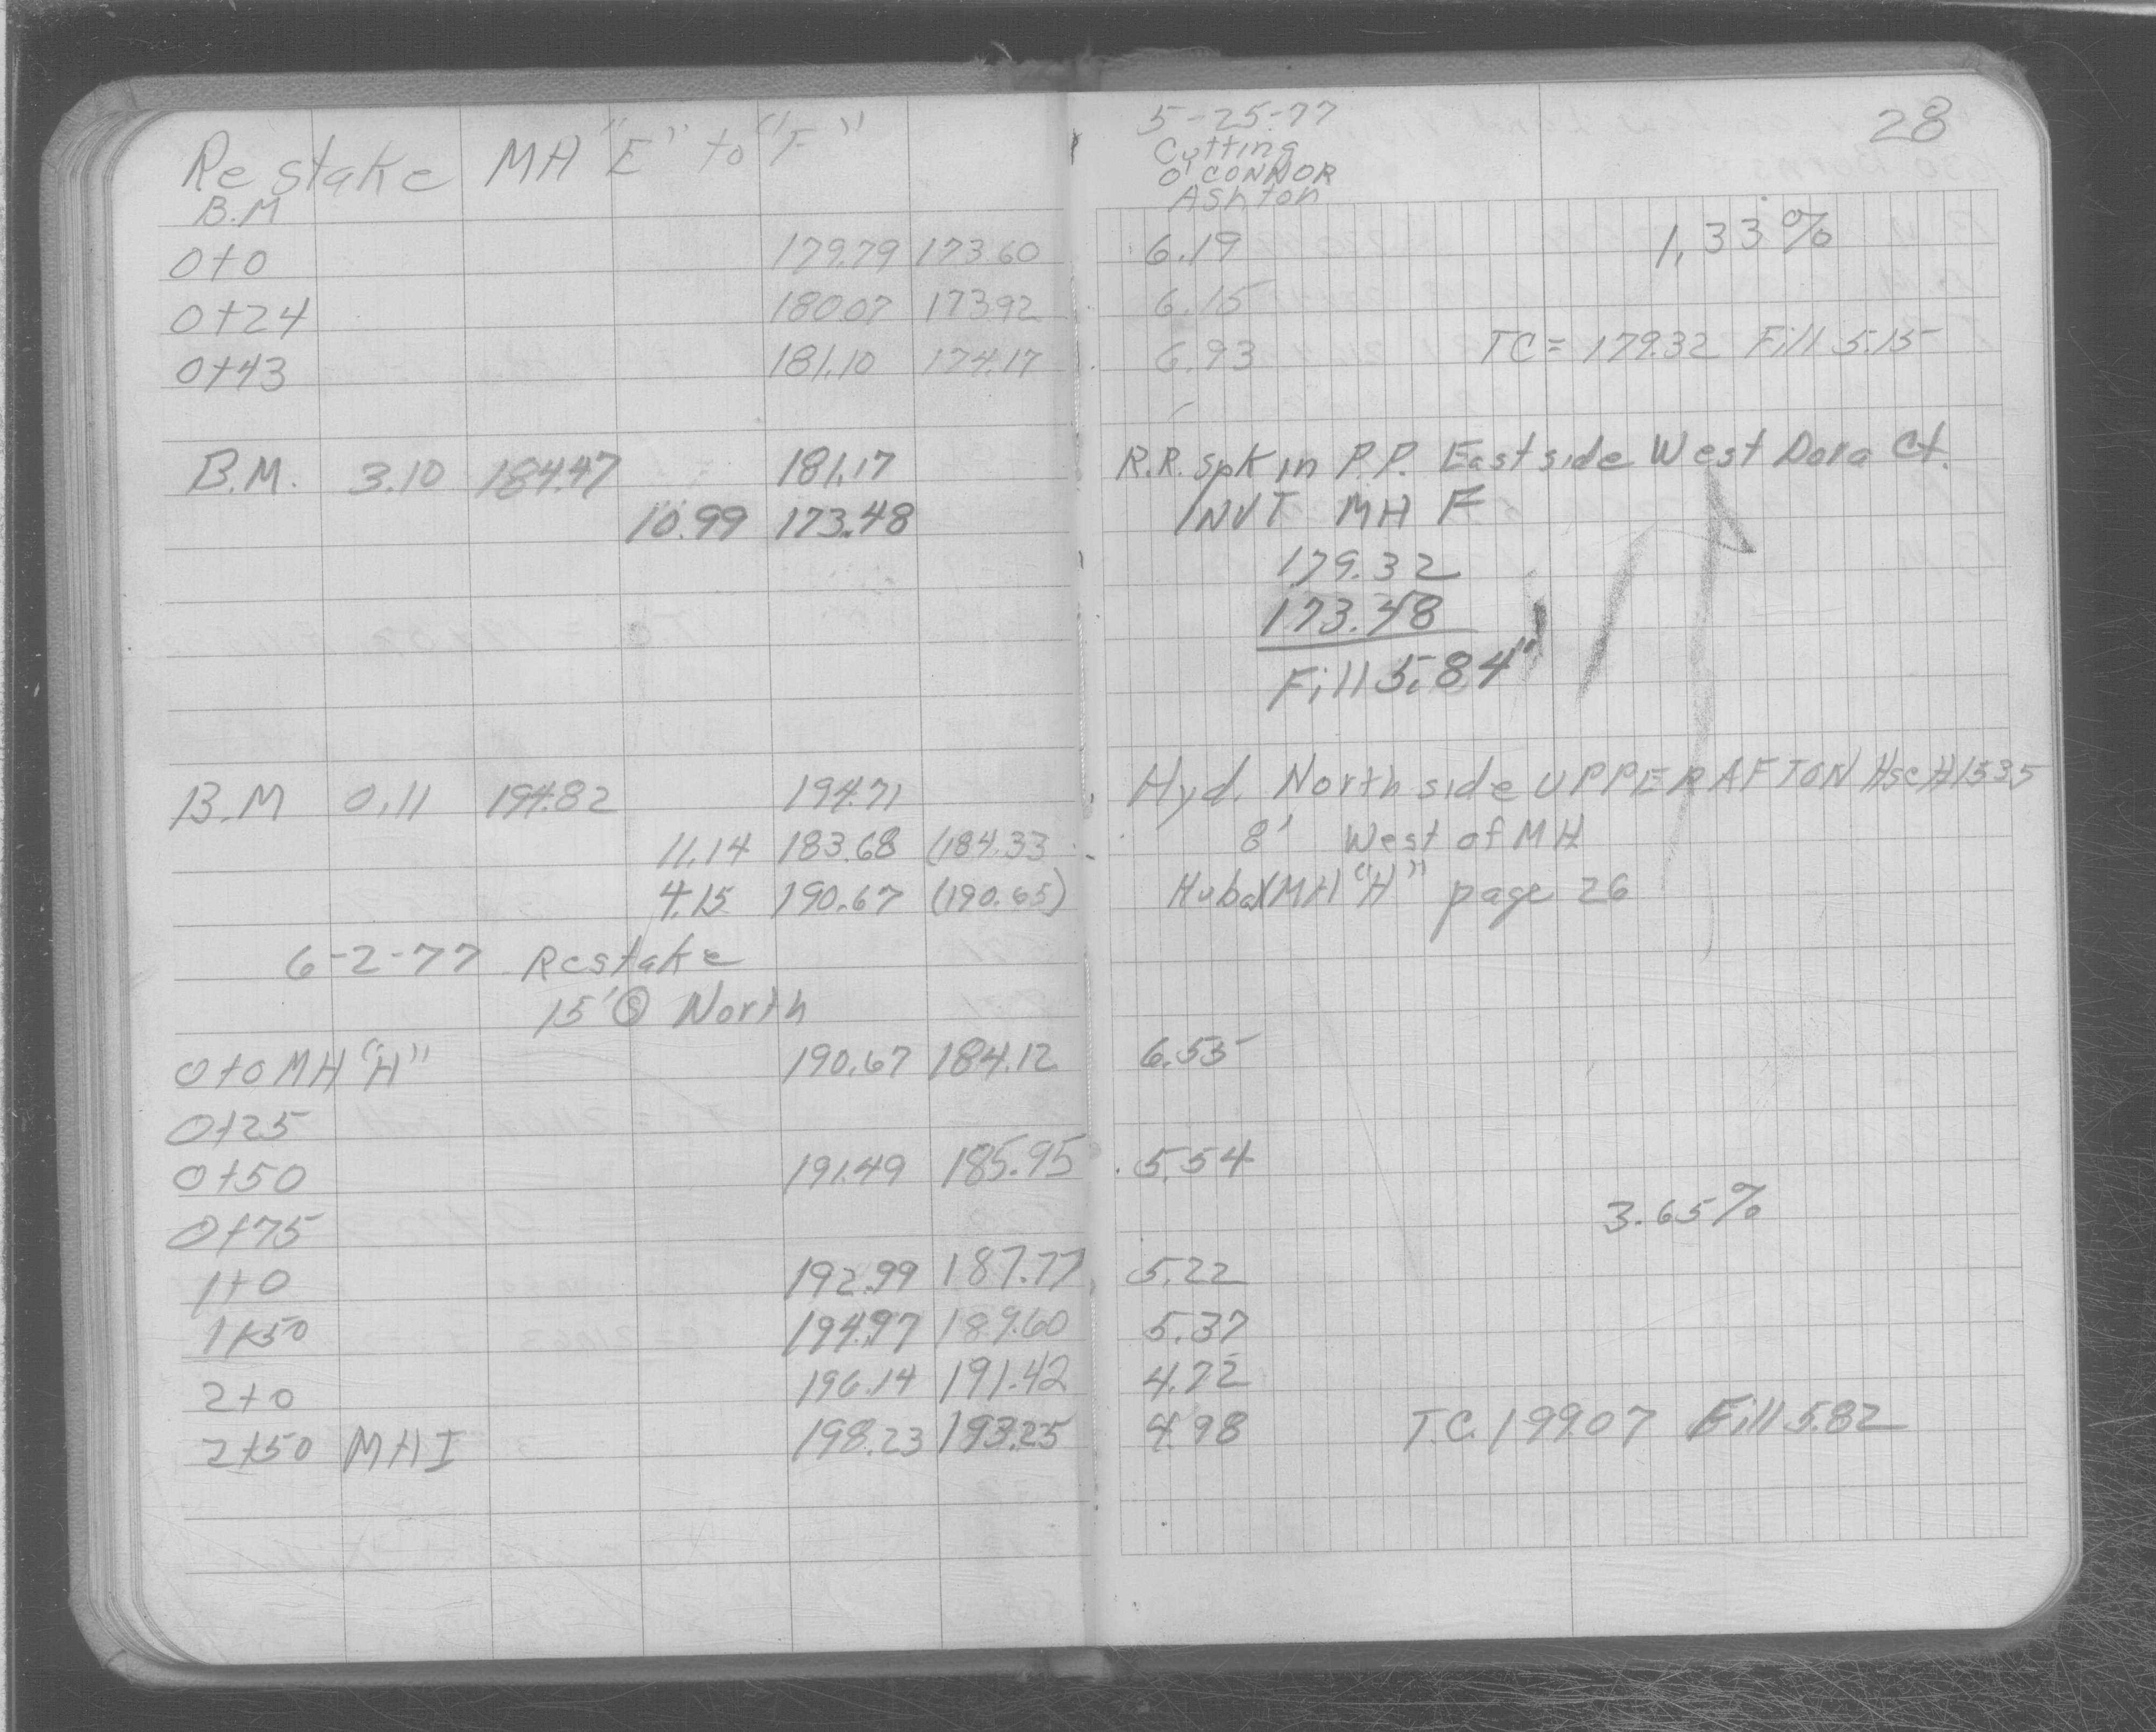 Restake MH "E" to "F"
5-25-77
28
Cutting
O'CONNOR
Ashton
B.M
0+0 179.79 173.60 6.19 1.33%
0+24 180.07 173.92 6.15
0+43 181.10 174.17 6.93 TC = 179.32 Fill 5.15
B.M. 3.10 184.47 181.17 R.R. Spk in P.P. East side West Dora Ct.
10.99 173.48 INVT MH F
179.32
173.48
Fill 5.84"
B.M 0.11 194.82 194.71 Hyd. North side UPPER AFTON Hse #1535
11.14 183.68 (184.33 8' West of MH
4.15 190.67 (190.65) Hub MH "H" page 26
6-2-77 Restake
15' North
0+0 MH "H" 190.67 184.12 6.55
0+25
0+50 191.49 185.95 5.54
0+75 3.65%
1+0 192.99 187.77 5.22
1+50 194.97 189.60 5.37
2+0 196.14 191.42 4.72
2+50 MH I 198.23 193.25 4.98 T.C. 199.07 Fill 5.82